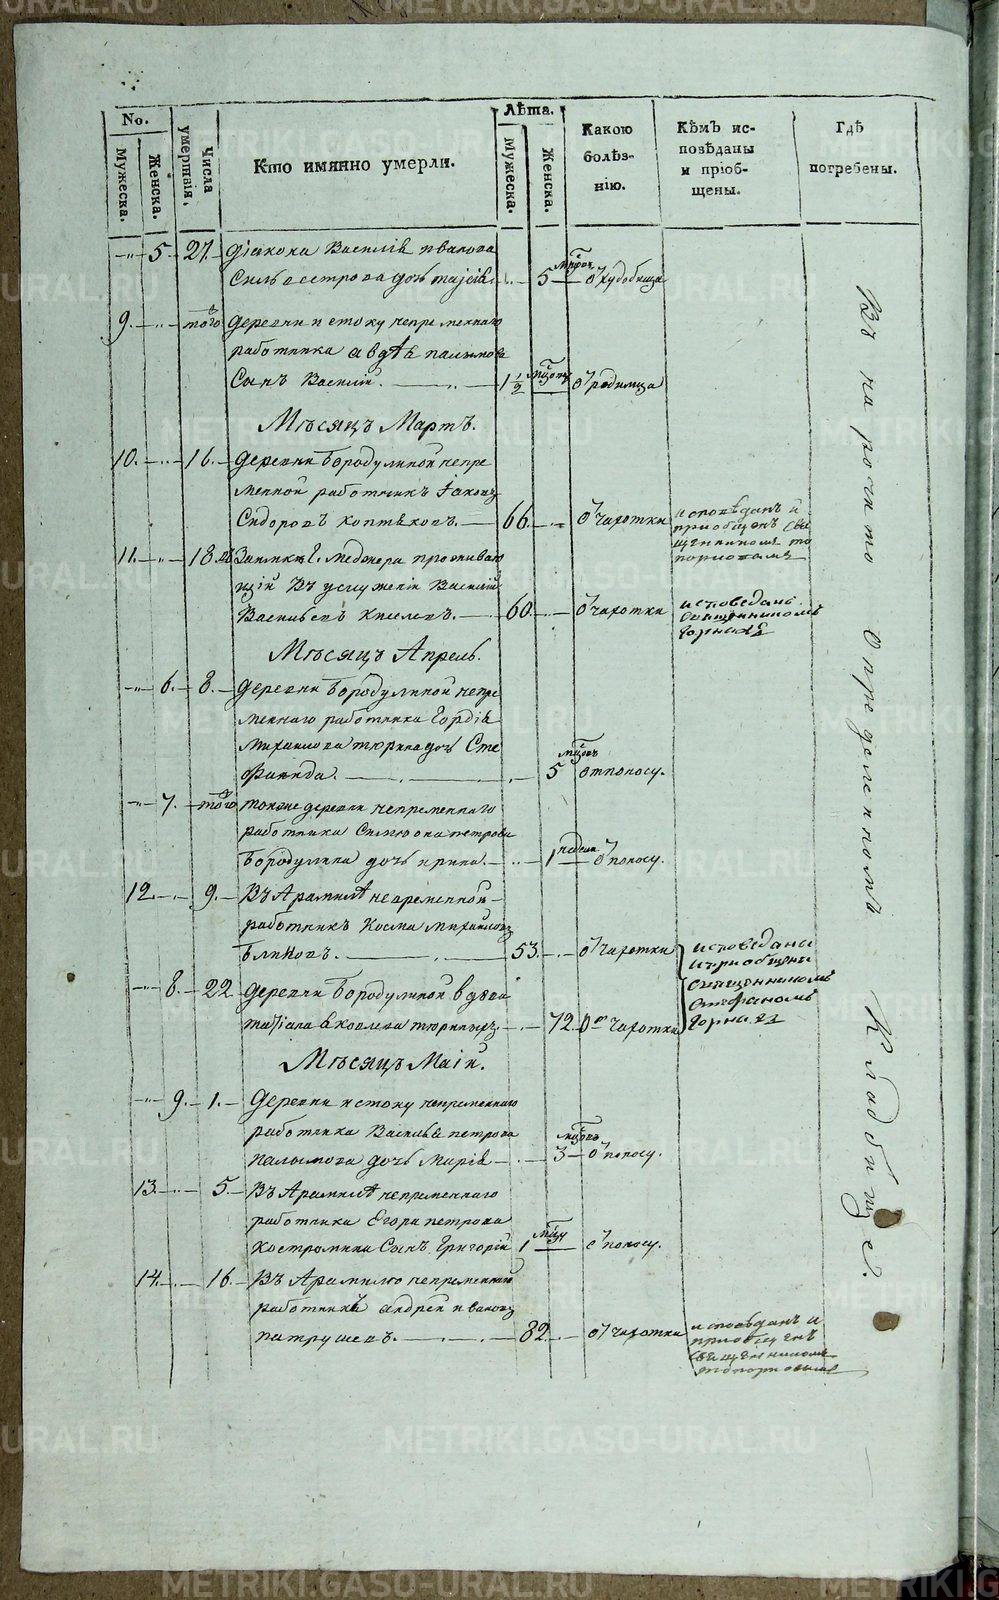 No. Лѣта.
Мужеска. Женска. Числа умершiя. Кто имянно умерли. Мужеска. Женска. Какою болѣзнiю. Кѣмъ исповѣданы и прiобщены. Гдѣ погребены.
5 27. дiакона Василiя Иванова
Сильвестрова дочь 5 ӧ худобища
9. того деревни Истоку непременнаго
работника Авдѣя Палымова
Сынъ Василiй. 1 1/2 ӧ родимца
Мѣсяцъ Мартъ.
10. 16. деревни Бородулиной непре
менной работникъ Iаковъ
Сидоровъ Коптяковъ. 66. ӧ чахотки исповѣданъ и
приобщенъ свя
щенникомъ То
порковымъ
11. 18. проживаю
щiй Въ услуженiи Василiй
Васильевъ Киселевъ. 60. ӧ чахотки исповѣданъ
священникомъ
Мѣсяцъ Апрель.
6. 8. деревни Бородулиной непре
меннаго работника Гордѣя
Михаилова Тюрина дочь Сте
фанида. 5 отпоносу.
7. того тояже деревни непременнаго
работника Симеона Петрова
Бородулина дочь Ирина. 1 недели ӧ поносу.
12. 9. Въ Арамилѣ непременной
работникъ Косма Михайловъ
Блиновъ. 53. ӧ чахотки исповѣданы
и приобщены
священникомъ
Стефаномъ
8. 22 деревни Бородулиной вдова
Татiана Яковлева 72 ӧ чахотки
Мѣсяцъ Маiй.
9. 1. деревни Истоку непременнаго
работника Василья Петрова
Палымова дочь Марiя 3 ӧ поносу.
13. 5. Въ Арамилѣ непременнаго
работника Егора Петрова
Костромина Сынъ Григорiй 1 ӧ поносу.
14. 16. Въ Арамилѣ непременный
работникъ Андрей Ивановъ
Патрушевъ. 82. ӧ чахотки исповѣданъ и
приобщенъ
священникомъ
Топорковымъ
Въ на рочито Определенномъ Кладбище.
METRIKI.GASO-URAL.RU